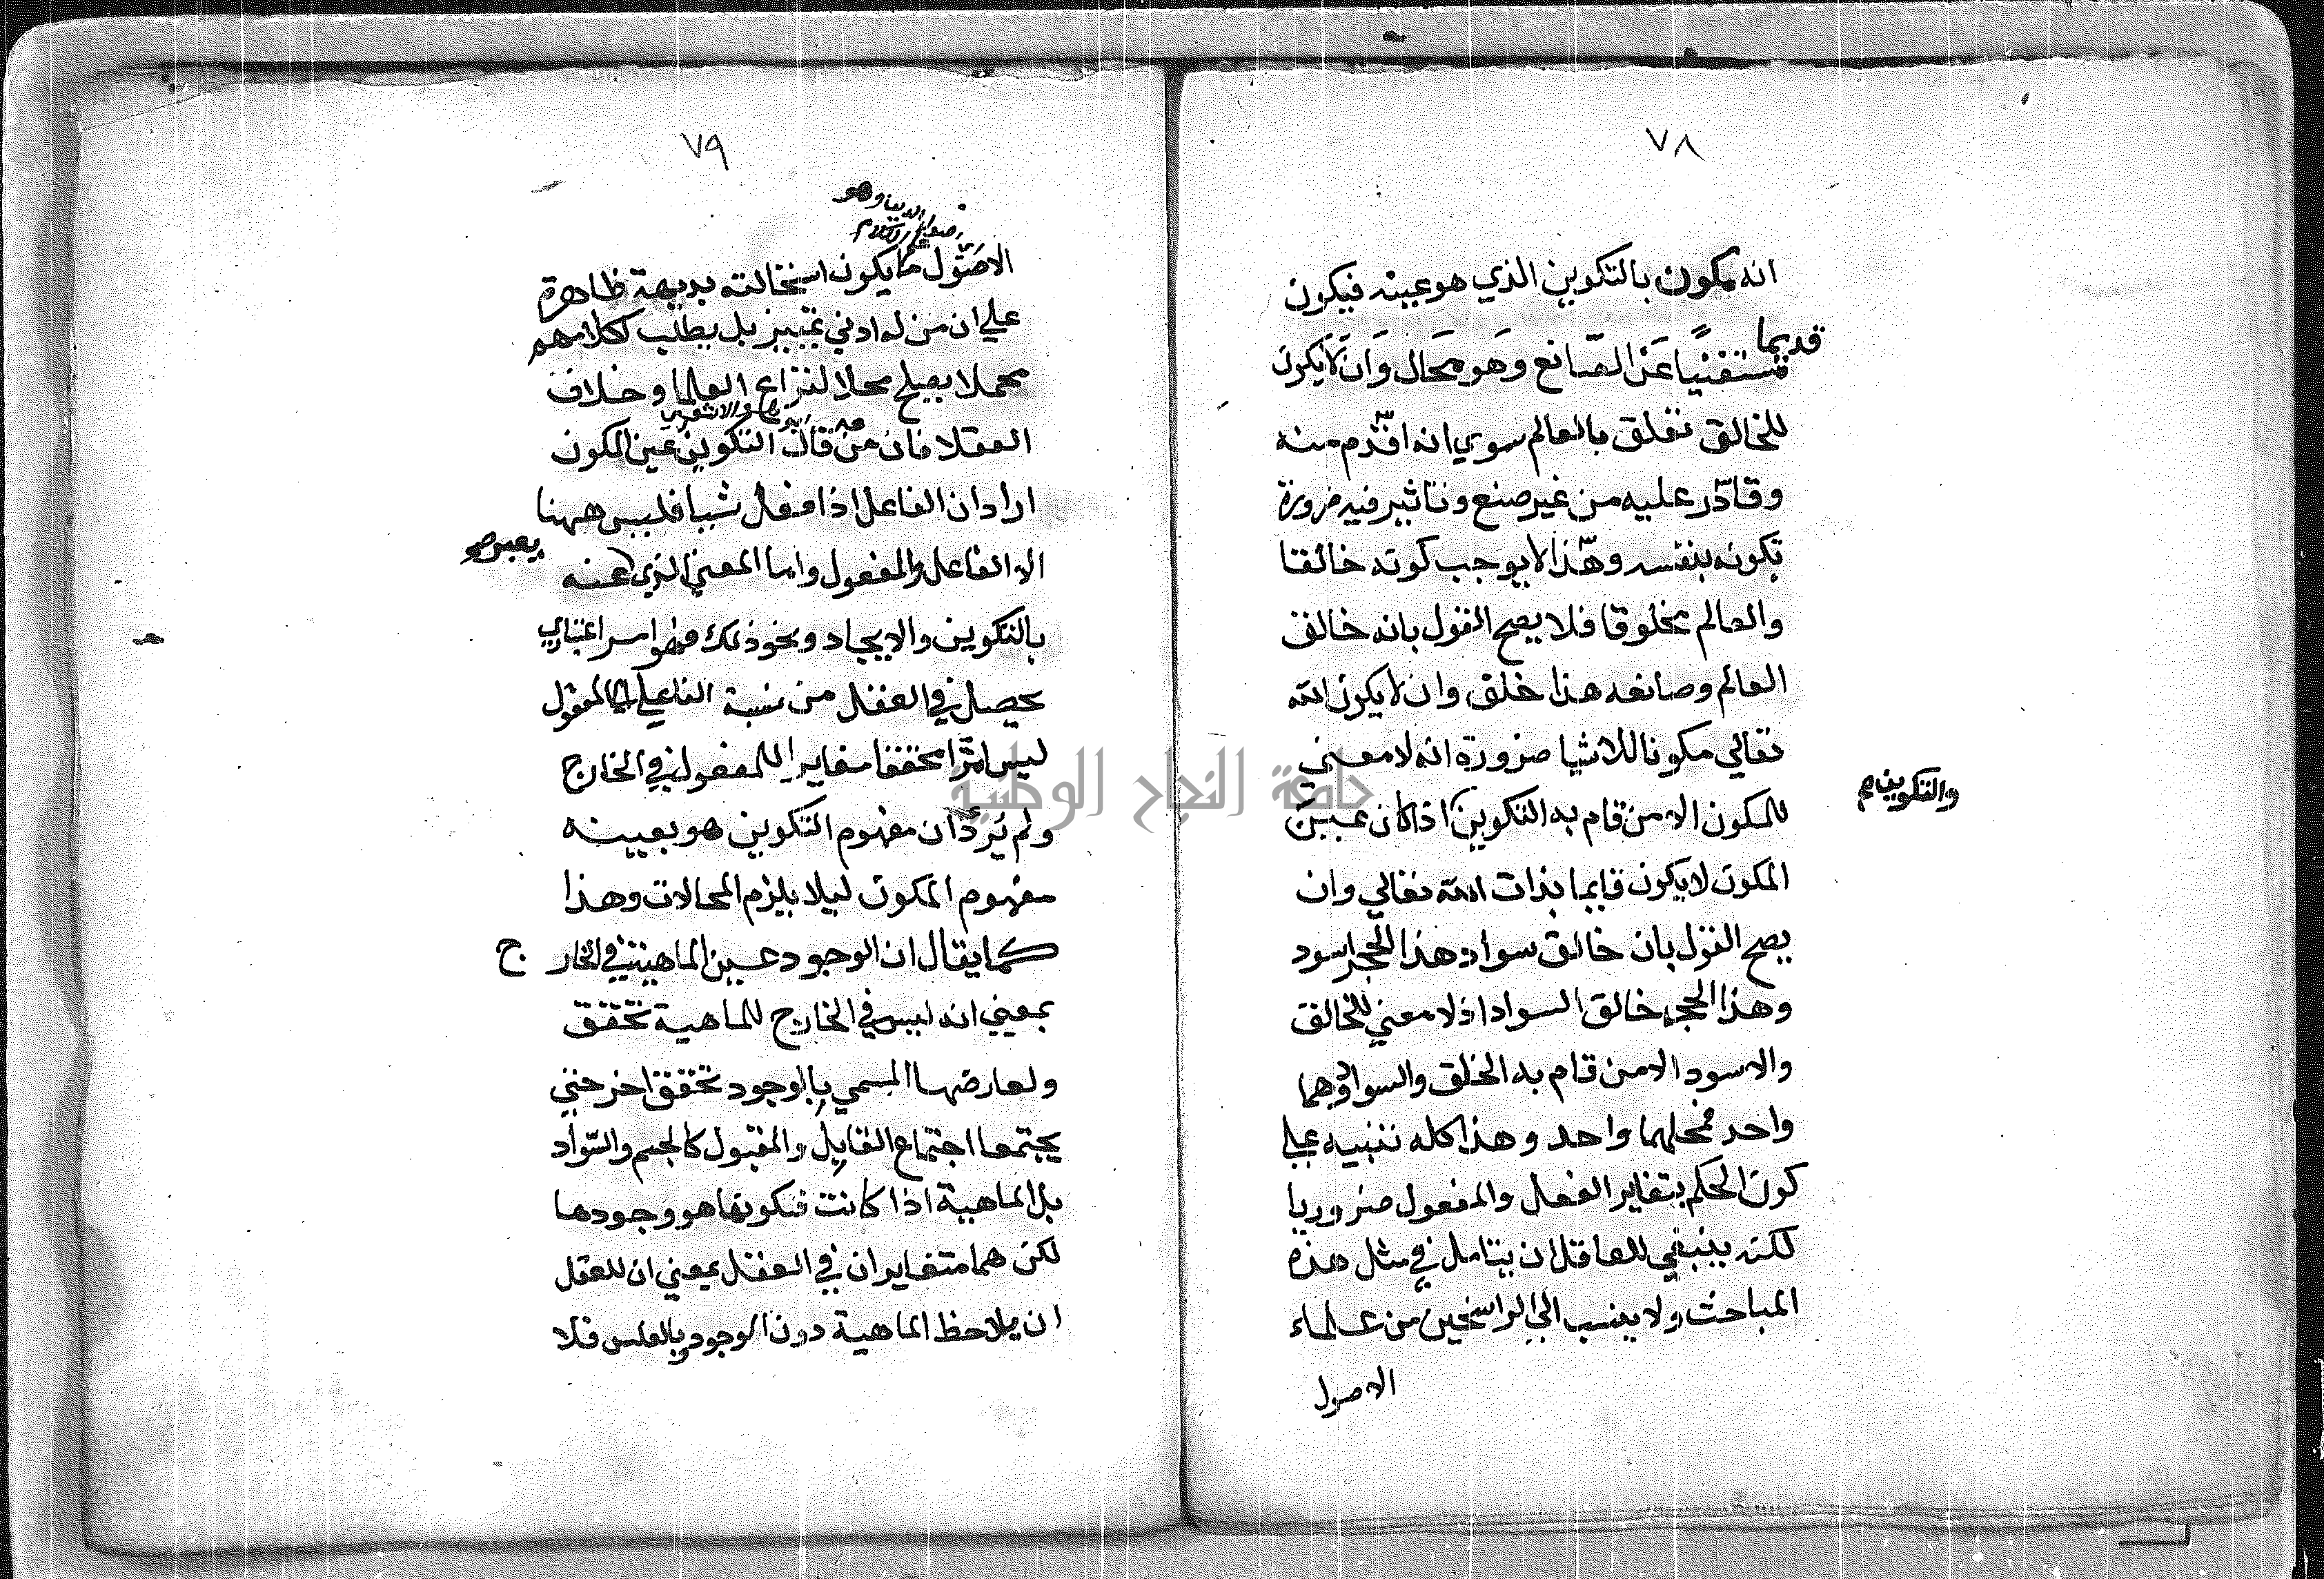 ٧٨
انه مكون بالتكوين الذي هو عينه فيكون
قديما
مستغنيا عن الصانع وهو محال وان لا يكون
للخالق تعلق بالعالم سوي انه اقدم منه
وقادر عليه من غير صنع وتاثير فيه ضرورة
تكونه بنفسه وهذا لا يوجب كونه خالقا
والعالم مخلوقا فلا يصح القول بانه خالق
العالم وصانعه هذا خلق وان لا يكون الله
تعالي مكونا للاشيا ضرورة انه لا معني
للمكون الا من قام به التكوين اذا كان عين
والتكوين
المكون لا يكون قايما بذات الله تعالي وان
يصح القول بان خالق سواد هذا الحجر اسود
وهذا الحجر خالق السواد اذ لا معني للخالق
والاسود الا من قام به الخلق والسواد وهما
واحد فمحلهما واحد وهذا كله تنبيه علي
كون الحكم بتغاير الفعل والمفعول ضروريا
لكنه ينبغي للعاقل ان يتامل في مثل هذه
المباحث ولا ينسب الي الراسخين من علماء
الاصول
٧٩
الاصول ما يكون استحالته بديهة ظاهرة
علي ان من له ادني تمييز بل يطلب لكلامهم
محملا يصلح محلا لنزاع العلما وخلاف
العقلا فان من قال التكوين عين المكون
اراد ان الفاعل اذا فعل شيا فليس ههنا
الا الفاعل والمفعول واما المعني الذي عنه
يعبر
بالتكوين والايجاد ونحو ذلك فهو امر اعتباري
يحصل في العقل من نسبة الفاعل الي المفعول
ليس امرا محققا مغايرا للمفعول في الخارج
ولم يرد ان مفهوم التكوين هو بعينه
مفهوم المكون ليلا يلزم المحالات وهذا
كما يقال ان الوجود عين الماهية في الخارج
بمعني انه ليس في الخارج للماهية تحقق
ولعارضها المسمي بالوجود تحقق اخر حتي
يجتمعا اجتماع القابل والمقبول كالجسم والسواد
بل الماهية اذا كانت فتكونها هو وجودها
لكن هما متغايران في العقل بمعني ان للعقل
ان يلاحظ الماهية دون الوجود وبالعكس فلا
جامعة النجاح الوطنية